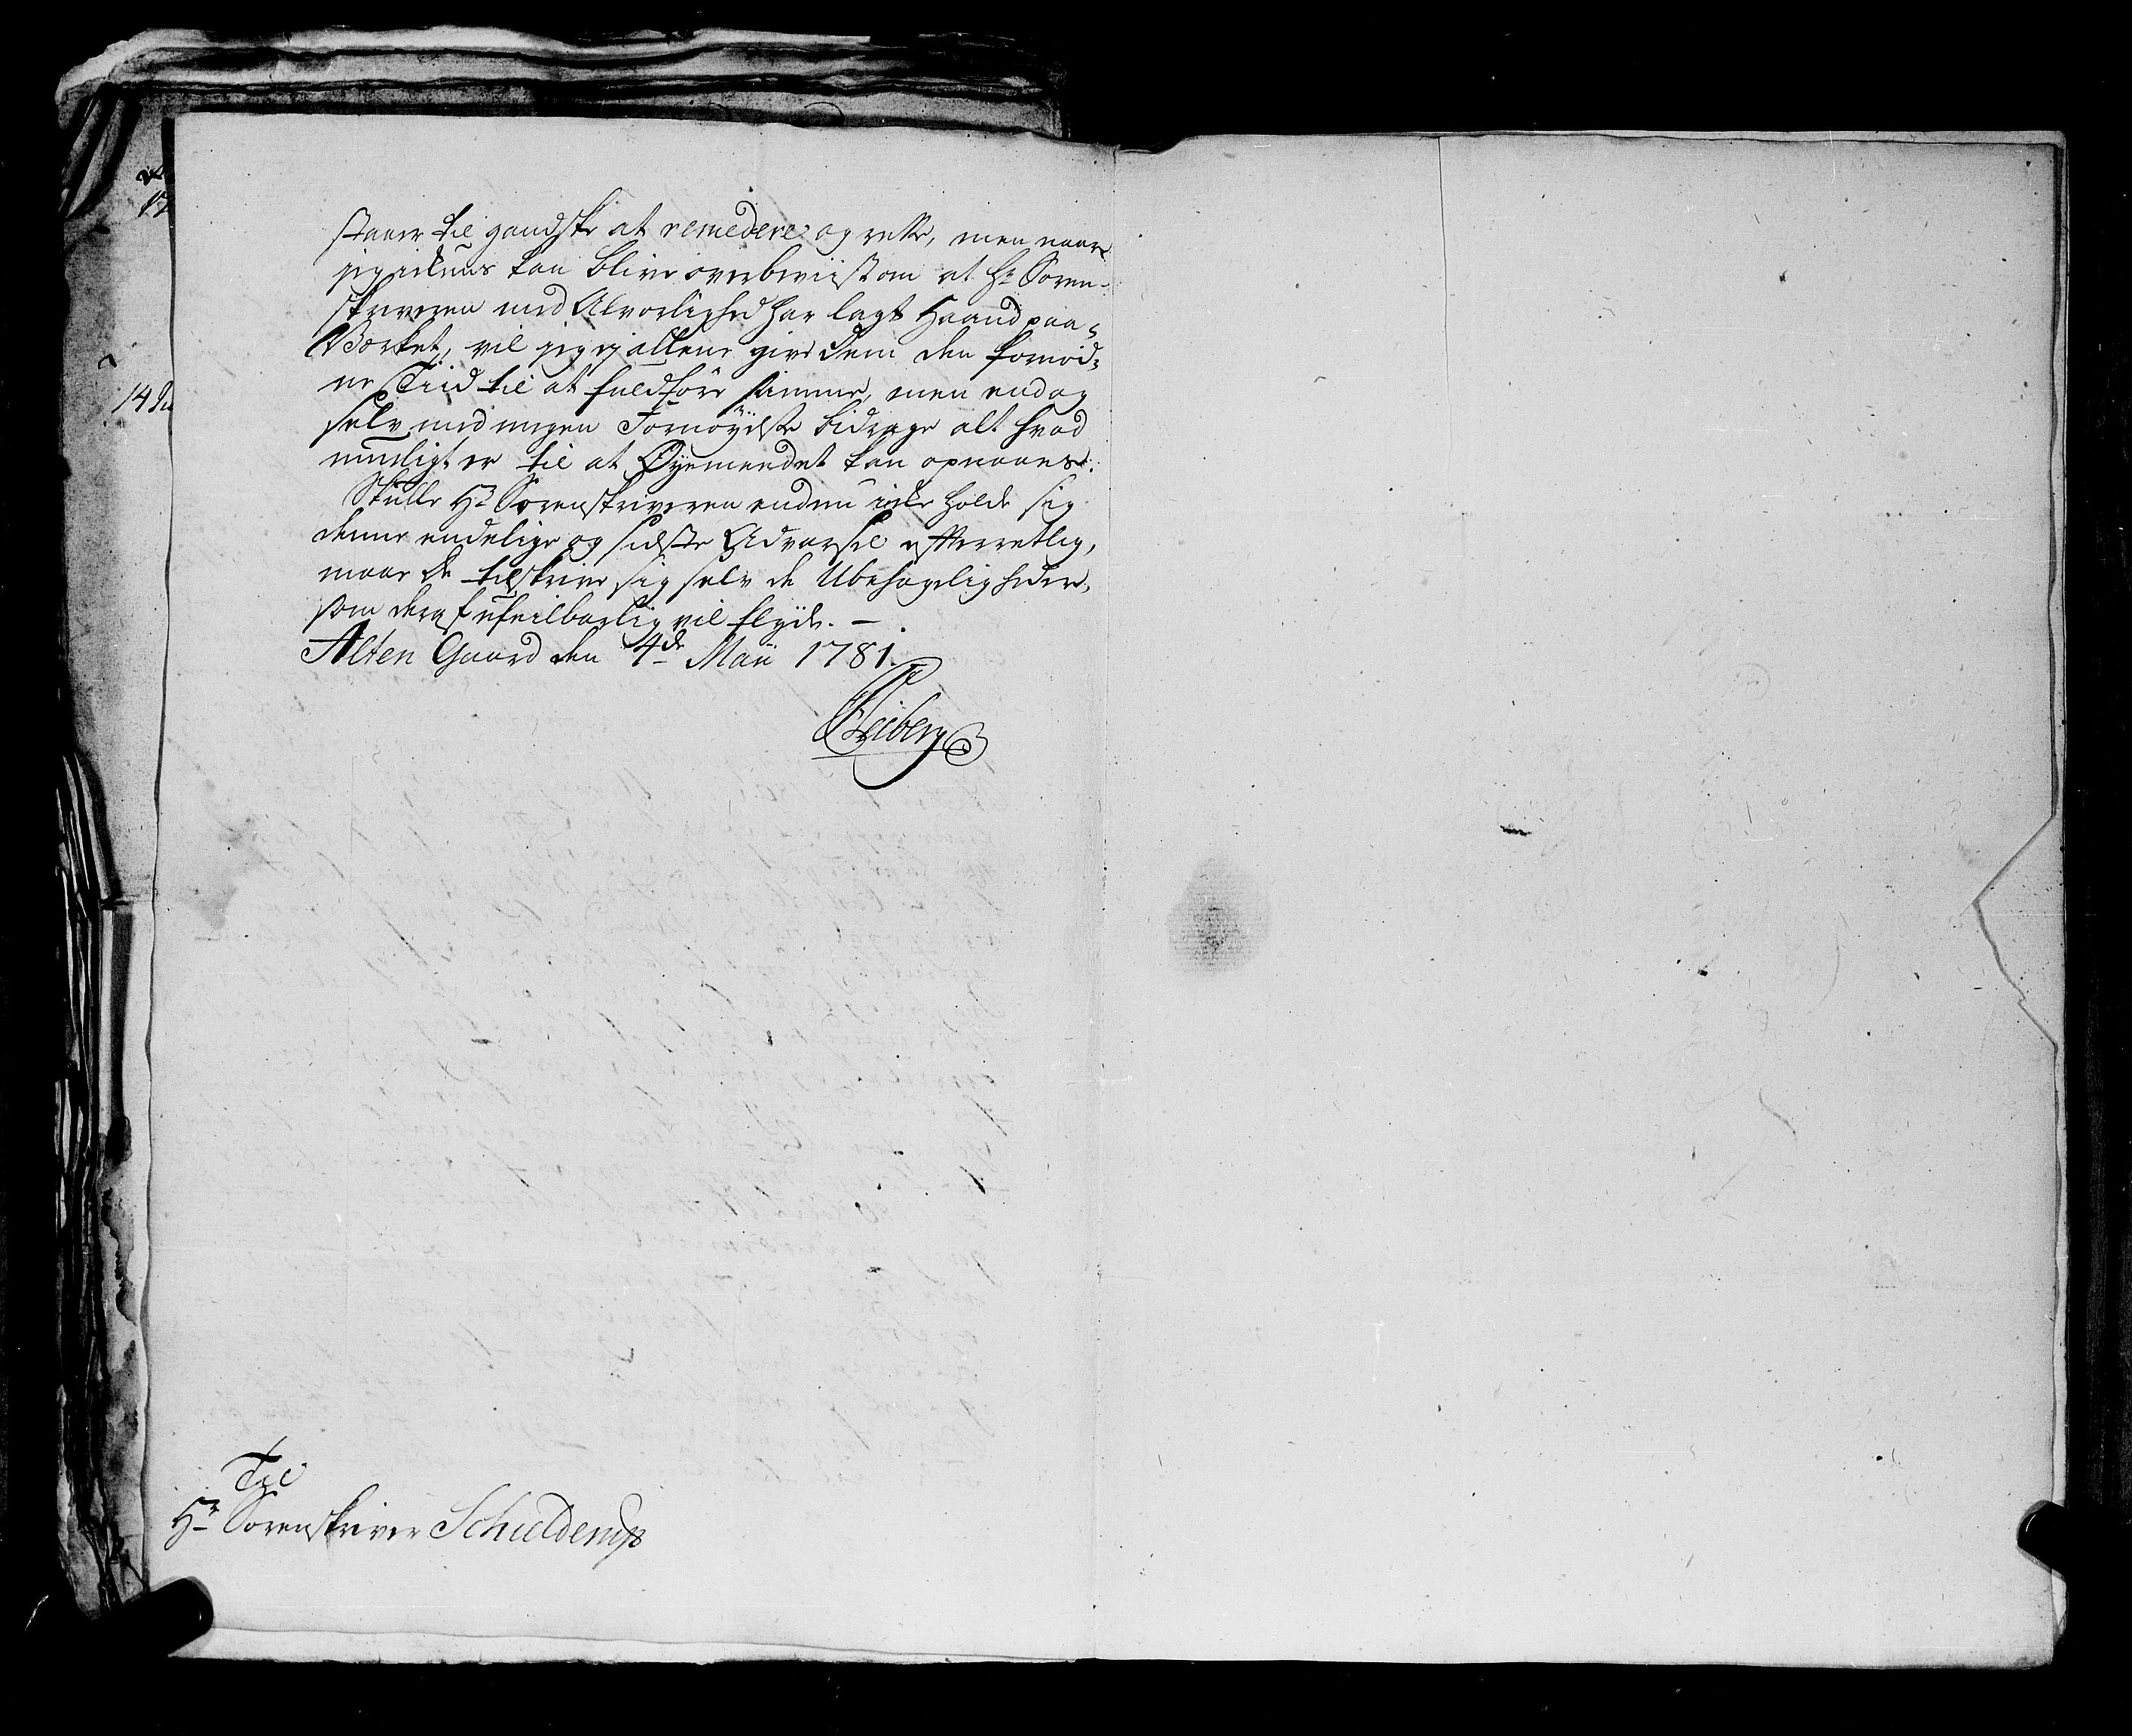 staaer til gandske at remedere og rette, men naar
jeg ickuns kan blive overbeviist om at Hr Soren-
skriveren med Alvorlighed har lagt Haand paa
Værket, vil jeg ej allene give Dem den fornød=
ne Tiid til at fuldføre samme, men endog
selv med megen Fornøyelse bidrage alt hvad
mueligt er til at Øyemeedet kan opnaaes.
Skulle Hr Sorenskriveren endnu icke holde sig
denne endelige og sidste Advarsel efterretlig,
maae De tilskrive sig selv de Ubehageligheder,
som deraf ufeilbarlig vil flyde. -
Alten Gaard den 4de Maii 1781.
Fieiberg
Til
Hr Sorenskriver Schielderup
14